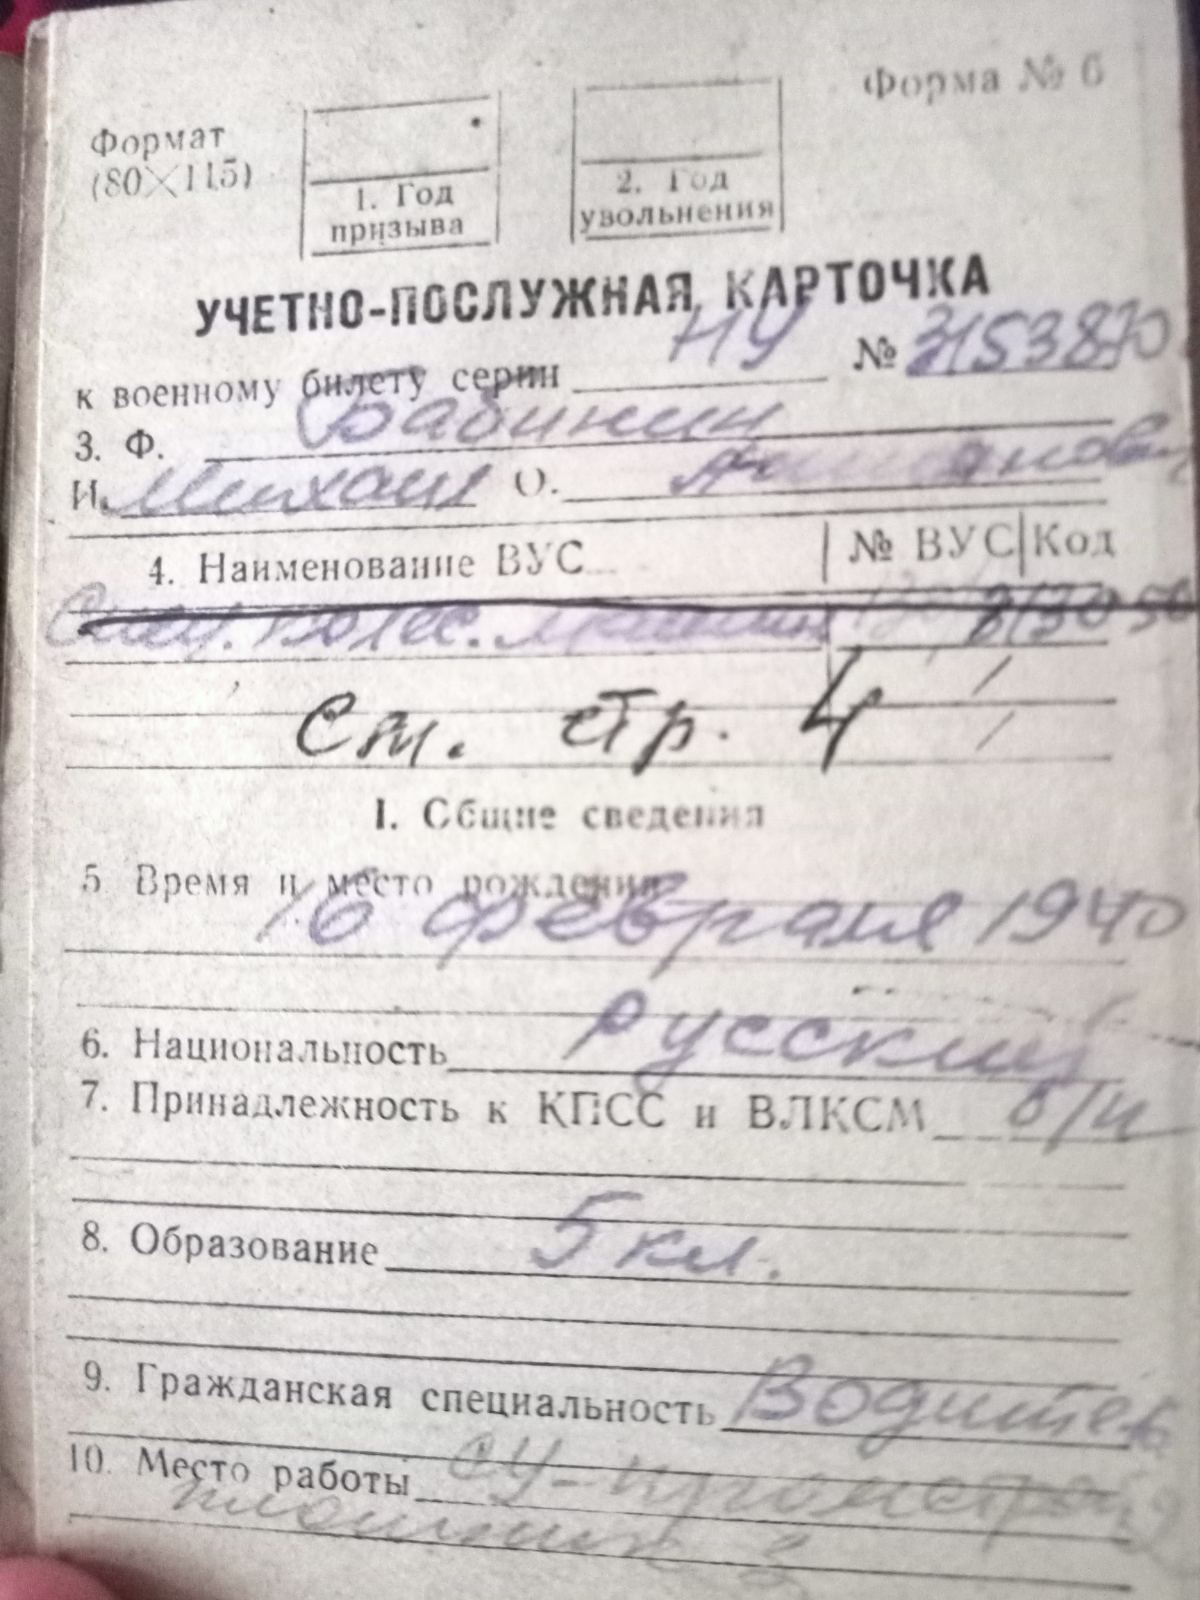 Форма № 6
Формат
(80×115)
1. Год
призыва
2. Год
увольнения
УЧЕТНО-ПОСЛУЖНАЯ КАРТОЧКА
к военному билету серии НУ №
3. Ф. Бабинин
И. Михаил О.
4. Наименование ВУС № ВУС Код
См. стр. 4
I. Общие сведения
5 Время и место рождения
16 февраля 1940
6. Национальность русский
7. Принадлежность к КПСС и ВЛКСМ б/п
8. Образование 5 кл.
9. Гражданская специальность Водитель
10. Место работы